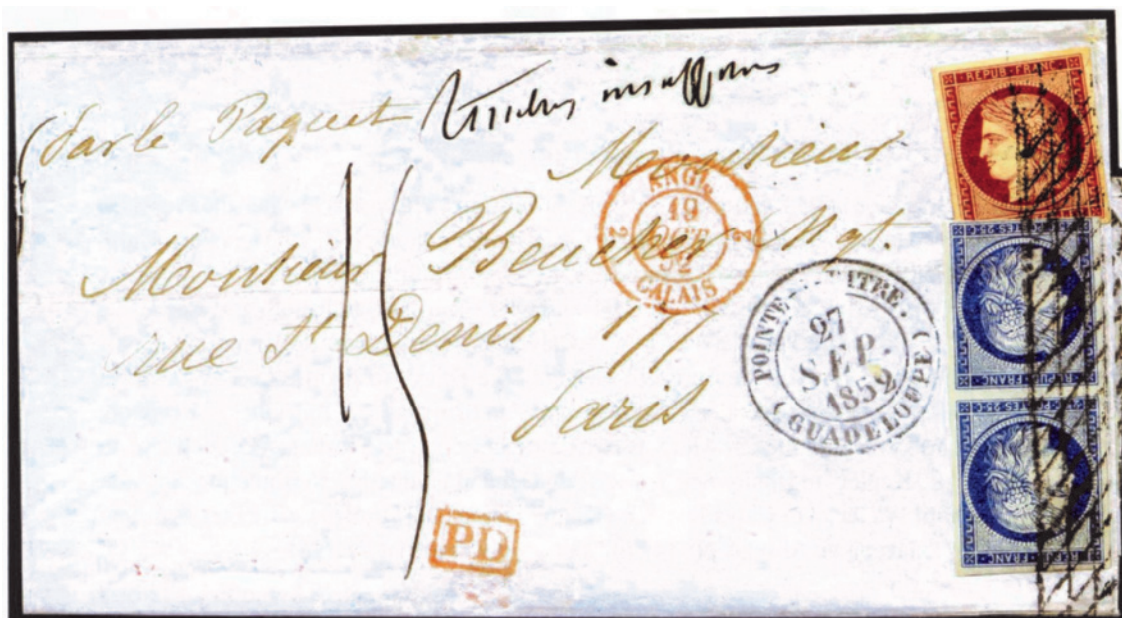 Par le Paquet
Timbres insuffisans
Monsieur
Monsieur Beucher Mgt.
rue St Denis 111
Paris
ANGL.
2 19 2
OCT
52
CALAIS
POINTE A PITRE.
27
SEP.
1852
(GUADELOUPE)
PD
REPUB FRANC
REPUB FRANC
REPUB FRANC